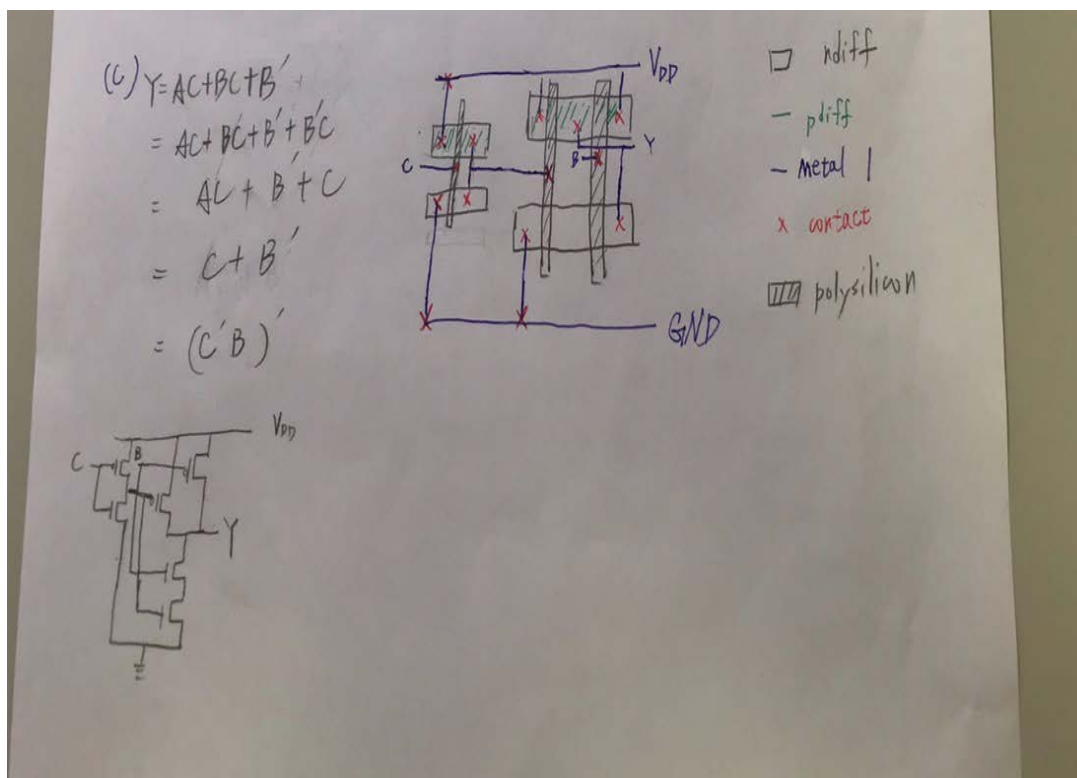 (C) Y=AC+BC+B'
= AC+BC+B'+B'C
= AC+B'+C
= C+B'
= (C'B)'
VDD
C
B
Y
GND
ndiff
pdiff
metal 1
x contact
polysilicon
C
B
VDD
Y